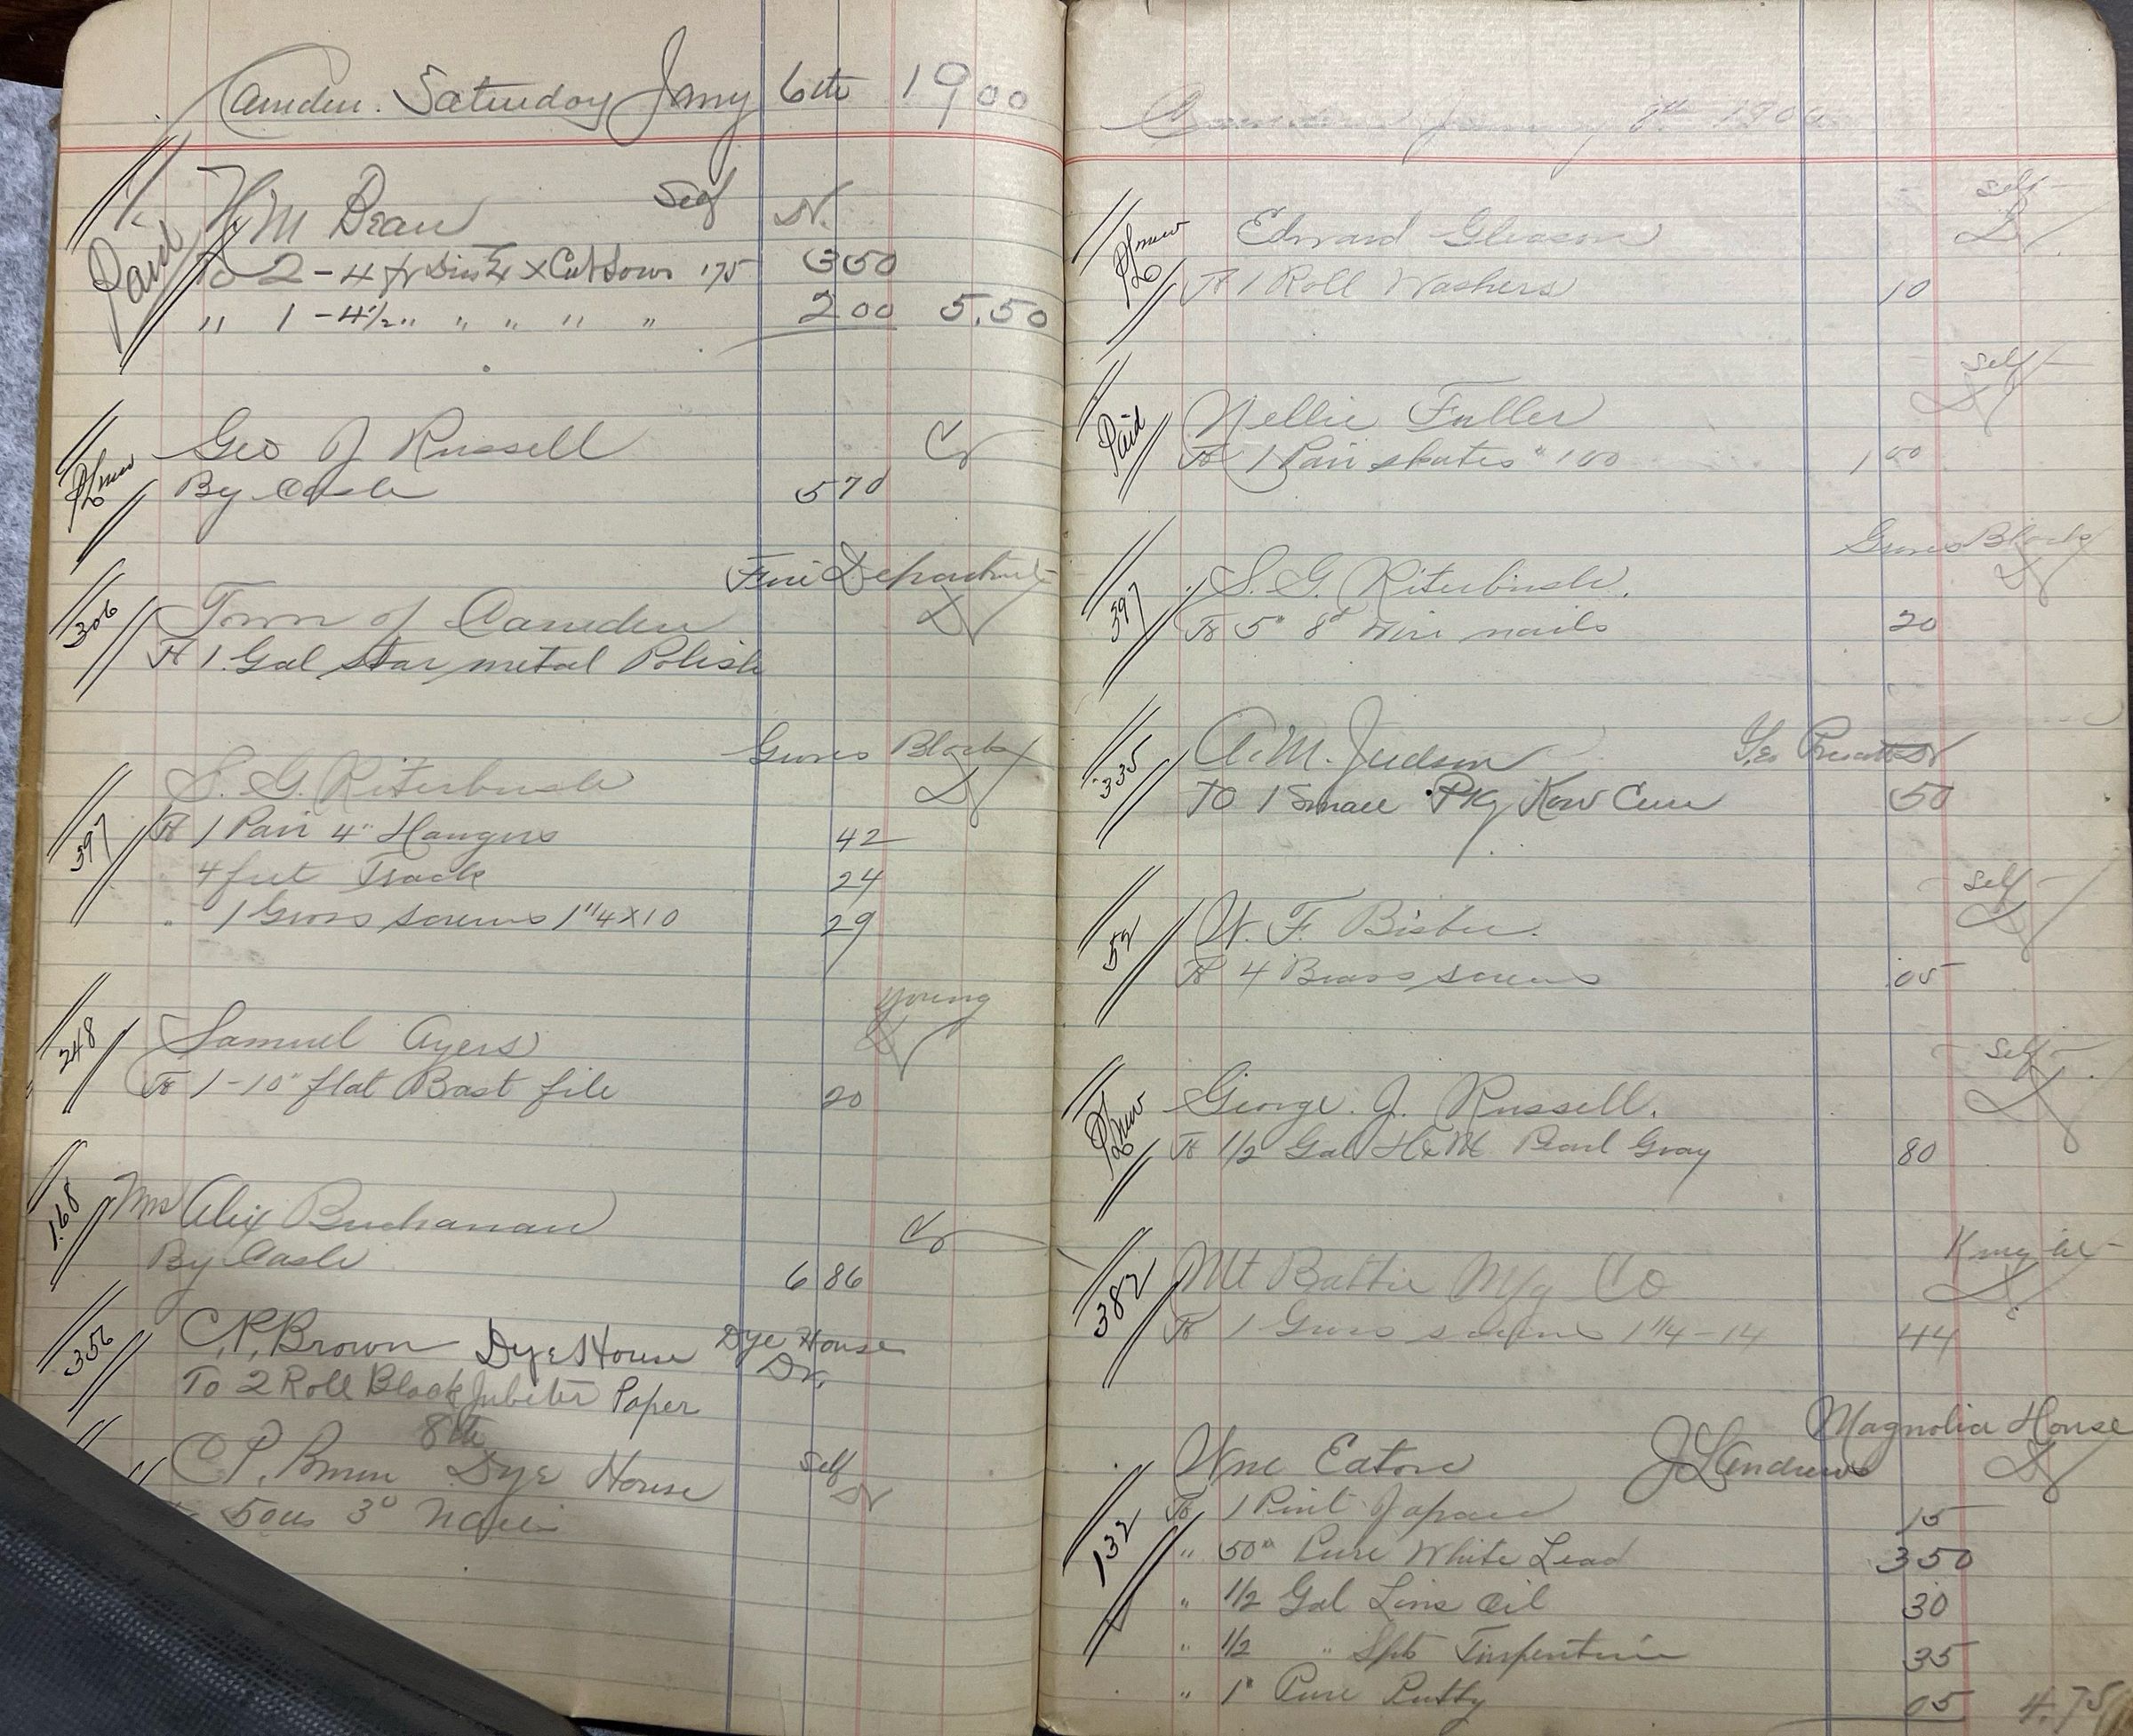 Camden. Saturday Jany 6th 1900
Paid
H M Bean Self Dr.
To 2 - 4 ft X Cut Saws 175 350
" 1 - 4½ " " " " " 2 00 5.50
Geo J Russell Cr
By Cash 5 70
Fire Department
306 Town of Camden Dr
To 1 Gal Star metal Polish
Block
S. G. Riterbush Dr
397 To 1 Pair 4" Hangers 42
4 feet Track 24
" 1 Gross screws 1 1/4 x 10 29
Young
248 Samuel Ayers Dr
To 1-10" flat Bast file 20
168 Mrs Alex Buchanan Cr
By Cash 6 86
356 C.P. Brown Dye House Dye House
Dr.
To 2 Roll Black Jubiter Paper
8th
C P. Brown Dye House Self Dr
3d Nails
Camden January 8th 1900
Self
Edward Gleason Dr
To 1 Roll Washers 10
Self
Paid Nellie Fuller Dr
To 1 Pair skates " 100 1 00
Block
397 S. G. Riterbush. Dr
To 5# 8d Wire nails 20
335 A. M. Judson Geo Dr
To 1 Small Pkg Kow Cure 50
Self
52 W. F. Bisbee. Dr
To 4 Brass screws .05
Self
George. J. Russell. Dr
To 1/2 Gal H&M Pearl Gray 80
382 Mt Battie Mfg Co Dr
To 1 Gross screws 1 1/4 - 14 44
Magnolia House
Wm Eaton J L Andrews Dr
132 To 1 Pint Japan 15
" 50# Pure White Lead 3 50
" 1/2 Gal Lins Oil 30
" 1/2 " Spts Turpentine 35
" 1# Pure Putty 05 4.75